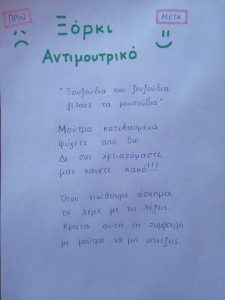 ΠΡΙΝ
ΜΕΤΑ
Ξόρκι
Αντιμουτρικό
"Ξουξούδια και ζουζούδια
γελάνε τα μουσούδια"
Μούτρα κατεβασμένα
φύγετε από δω
Δε σας χρειαζόμαστε
μας κάνετε κακό!!!
Όταν νιώθουμε άσχημα
το λέμε με τις λέξεις.
Κράτα αυτή τη συμβουλή
με μούτρα να μη μπλέξεις